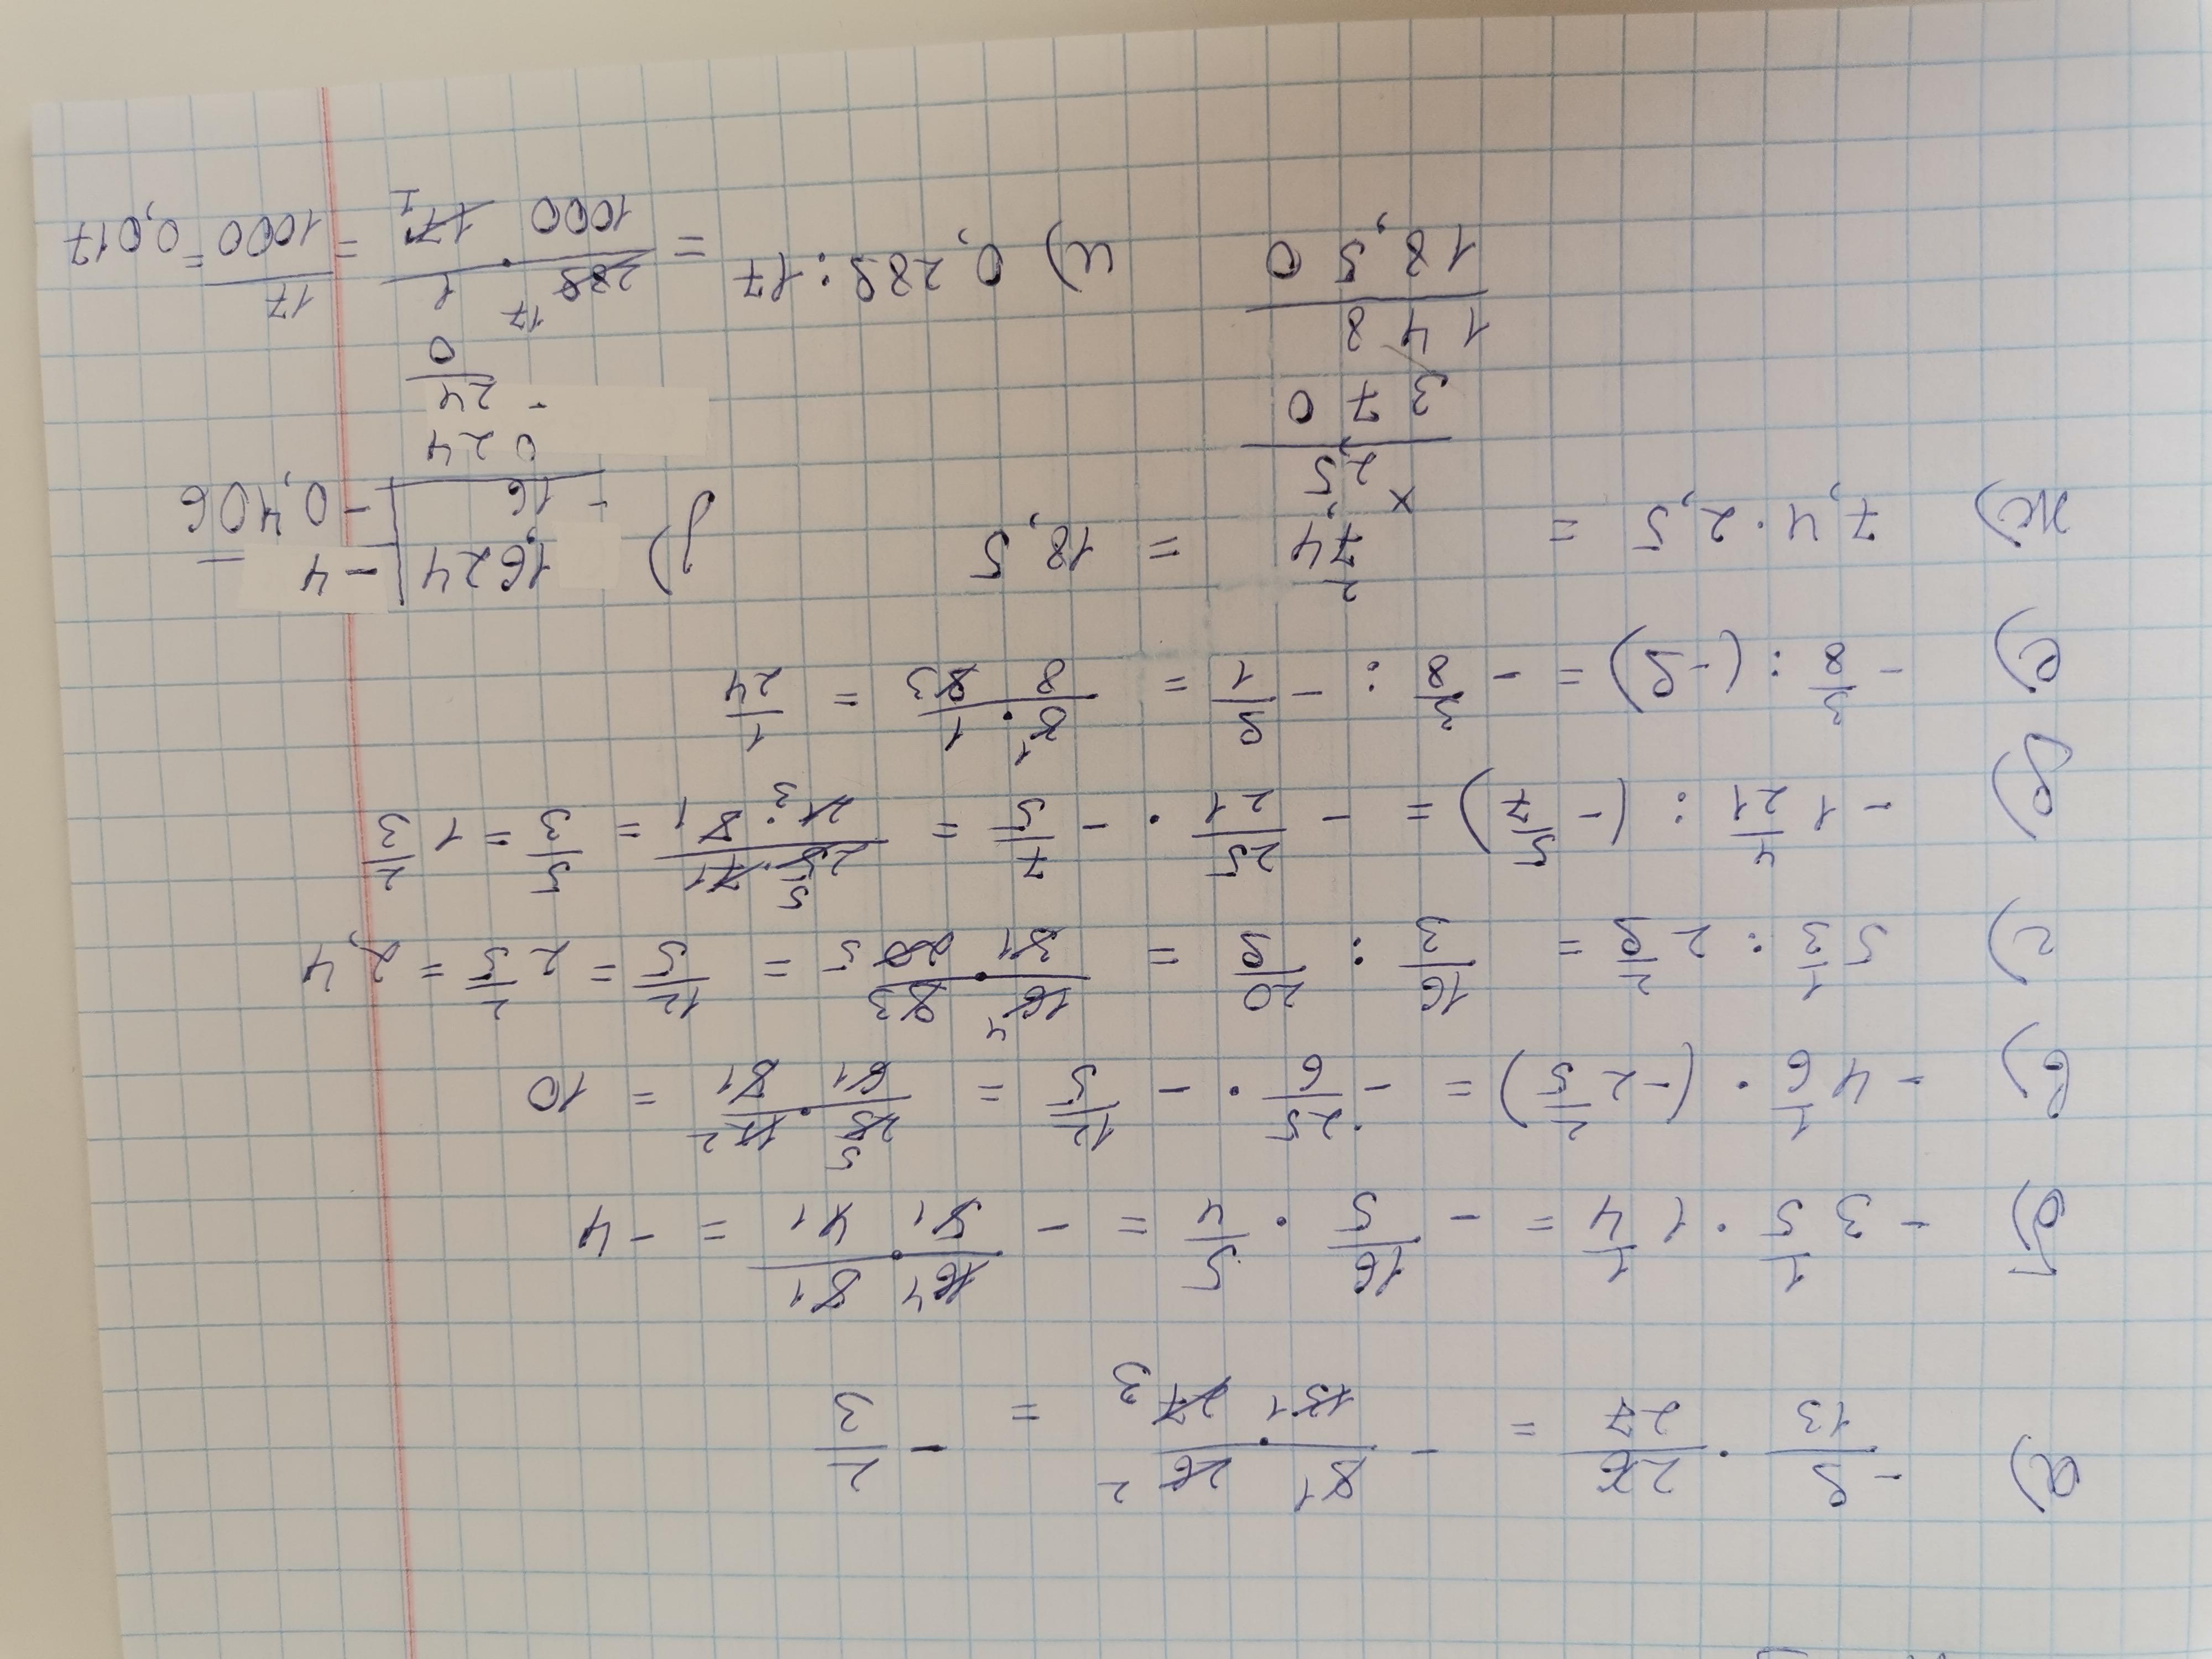 а) -9/13 · 26/27 = - 9 1 · 26 2 / 13 1 · 27 3 = - 2/3
б) - 3 1/5 · 1 1/4 = - 16/5 · 5/4 = - 16 4 · 5 1 / 5 1 · 4 1 = - 4
в) - 4 1/6 · (- 2 2/5) = - 25/6 · - 12/5 = 25 5 · 12 2 / 6 1 · 5 1 = 10
г) 5 1/3 : 2 2/9 = 16/3 : 20/9 = 16 4 · 9 3 / 3 1 · 20 5 = 12/5 = 2 2/5 = 2,4
д) - 1 4/21 : (- 5/7) = - 25/21 · - 7/5 = 25 5 · 7 1 / 21 3 · 5 1 = 5/3 = 1 2/3
е) - 3/8 : (-9) = - 3/8 : - 9/1 = 3 1 · 1 / 8 · 9 3 = 1/24
ж) 7,4 · 2,5 = 7,4 = 18,5
2
×
2,5
3 7 0
1 4 8
1 8, 5 0
з) 1,624 | - 4
- 16 | - 0,406
024
- 24
0
и) 0,289 : 17 = 289 17 / 1000 · 1 / 17 1 = 17/1000 = 0,017